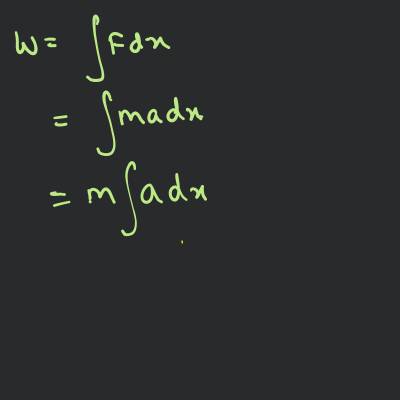 W = ∫Fdx
= ∫madx
= m∫adx